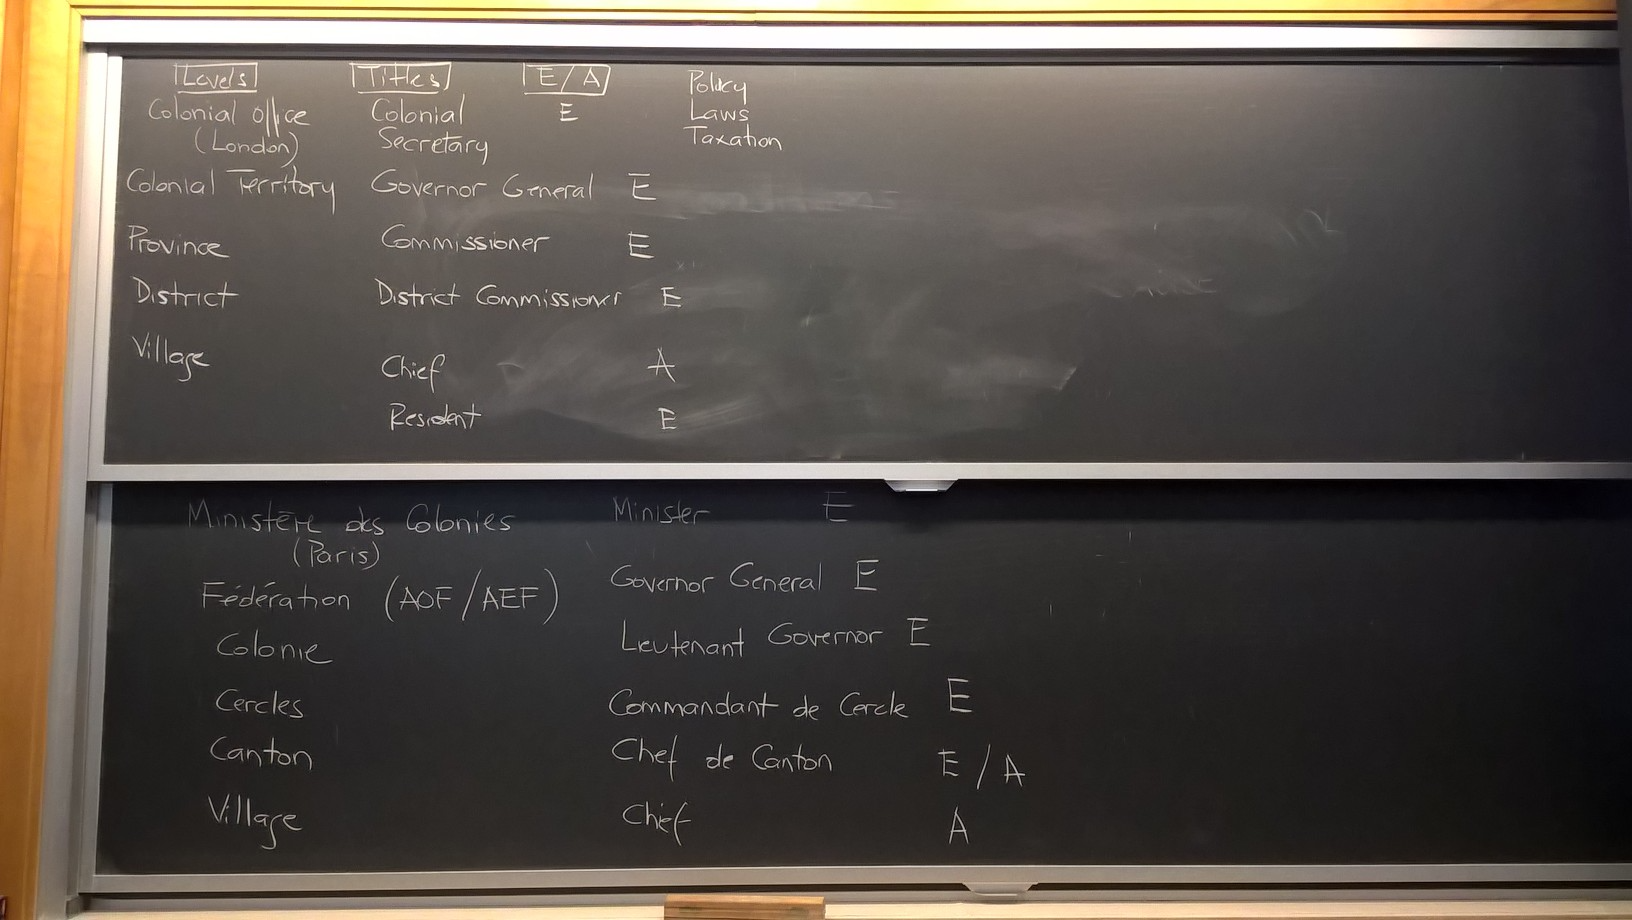 Levels Titles E/A Policy
Colonial Office Colonial E Laws
(London) Secretary Taxation
Colonial Territory Governor General E
Province Commissioner E
District District Commissioner E
Village Chief A
Resident E
Ministère des Colonies Minister E
(Paris)
Fédération (AOF/AEF) Governor General E
Colonie Lieutenant Governor E
Cercles Commandant de Cercle E
Canton Chef de Canton E/A
Village Chief A